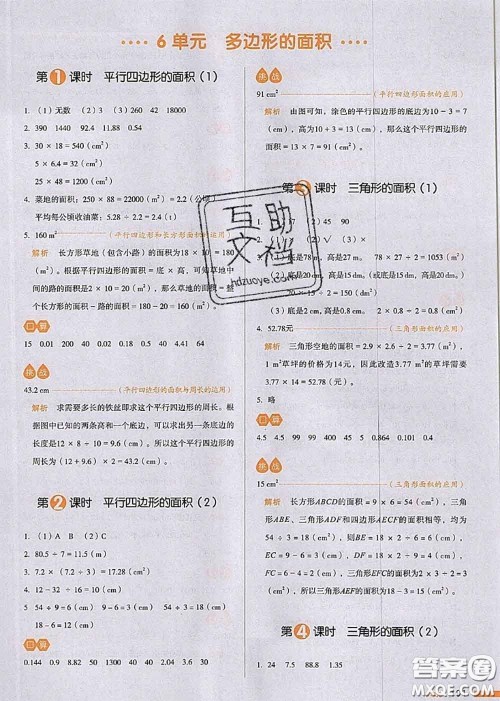 6 单元 多边形的面积
第1课时 平行四边形的面积（1）
1.（1）无数 （2）3 （3）260 42 18000
2. 390 1440 92.4 11.88 0.54
3. 30 × 18 = 540（cm²）
5 × 6.4 = 32（cm²）
1.5 × 24 = 48（cm²）
4. 菜地的面积：250 × 88 = 22000（m²）= 2.2（公顷）
平均每公顷收油菜：5.28 ÷ 2.2 = 2.4（t）
5. 160 m²（平行四边形和长方形面积的应用）
解析 长方形草地（包含小路）的面积为18 × 10 =
180（m²），根据平行四边形的面积 = 底 × 高，可知草地中
间的路的面积为2 × 10 = 20（m²），那么草地的面积 = 整
个长方形的面积 − 路的面积 = 180 − 20 = 160（m²）。
口算
15 0.01 200 40 0.02 0.18 0.5 40 4.41 64
挑战
43.2 cm（平行四边形的面积与周长的运用）
解析 求需要多长的铁丝即求这个平行四边形的周长。根
据图中已知的两条高和一个底边，可以求出另一条底边的
长度是12 × 8 ÷ 10 = 9.6（cm）。所以这个平行四边形的周
长为（12 + 9.6）× 2 = 43.2（cm）。
第2课时 平行四边形的面积（2）
1.（1）A B （2）C
2. 80.5 ÷ 7 = 11.5（m）
3. 7.2 ×（7.2 ÷ 3）= 17.28（cm²）
4. 12 − 32 ÷ 16 = 10（m）
5 54 ÷ 9 = 6（cm） 9 − 6 = 3（cm） 54 ÷ 3 = 18（cm）
18 − 6 = 12（cm）
口算
0.144 0.9 10.8 8.7 9.42 30 0.2 50 9.9 0.5
挑战
91 cm²（平行四边形面积的应用）
解析 由图可知，涂色的平行四边形的底边为10 − 3 = 7
（cm），高为10 + 3 = 13（cm），那么这个平行四边形的面
积 = 13 × 7 = 91（cm²）。
课时 三角形的面积（1）
（2）45 90
（2）√ （3）×
底是78 m，高是27 m。 78 × 27 ÷ 2 = 1053（m²）
（2）底是20 dm，高是15 dm（或底是15 dm，高是20 dm）。
20 × 15 ÷ 2 = 150（dm²）
（3）底是2 cm，高是0.8 cm。 2 × 0.8 ÷ 2 = 0.8（cm²）
4. 52.78元（三角形面积的应用）
解析 三角形空地的面积 = 2.9 × 2.6 ÷ 2 = 3.77（m²），
1 m²草坪的价格为14元，因此改造3.77 m²的草坪需要
3.77 × 14 = 52.78（元）。
5. 略
口算
4.5 4.5 99 99 400 45 5 0.864 0.101 0.4
挑战
15 cm²（三角形面积的应用）
解析 长方形ABCD的面积 = 9 × 6 = 54（cm²），三角
形ABE、三角形ADF和四边形AECF的面积相等，均为
54 ÷ 3 = 18（cm²），所以BE = 18 × 2 ÷ 6 = 6（cm），
EC = 9 − 6 = 3（cm），DF = 18 × 2 ÷ 9 = 4（cm），
FC = 6 − 4 = 2（cm），三角形EFC的面积为2 × 3 ÷ 2 = 3
（cm²），所以三角形AEF的面积为18 − 3 = 15（cm²）。
第4课时 三角形的面积（2）
1. 24 7.5 88.8 1.35
互助文档
hdzuoye.com
答案圈
MXQE.COM